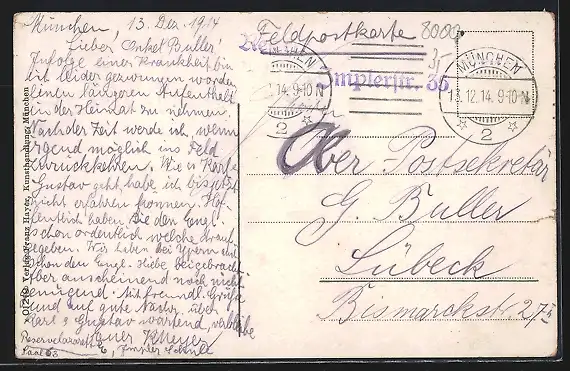 München, 13. Dez. 1914
Lieber Onkel Buller!
Infolge einer Krankheit bin
ich leider gezwungen worden
einen längeren Aufenthalt
in der Heimat zu nehmen.
Nach der Zeit werde ich, wenn
irgend möglich ins Feld
zurückkehren. Wie es Karl
Gustav geht, habe ich bis jetzt
nicht erfahren können. Hof-
fentlich haben sie den Engl.
schon ordentlich welche drauf
gegeben. Wir haben bei Ypern
schon den Engl. Hiebe beigebracht
aber anscheinend noch nicht
genügend. Mit freundl. Grüße
und auf gute Nachr. über
Karl & Gustav wartend, verbleibe
Euer
Reservelazarett
Saal
Feldpostkarte
8000
Implerstr. 35
MÜNCHEN
14. 9-10 N
2
MÜNCHEN
13.12.14. 9-10 N
2
Ober-Postsekretär
G. Buller
Lübeck
Bismarckstr. 27
Verlag Franz Hayer, Kunsthandlung, München